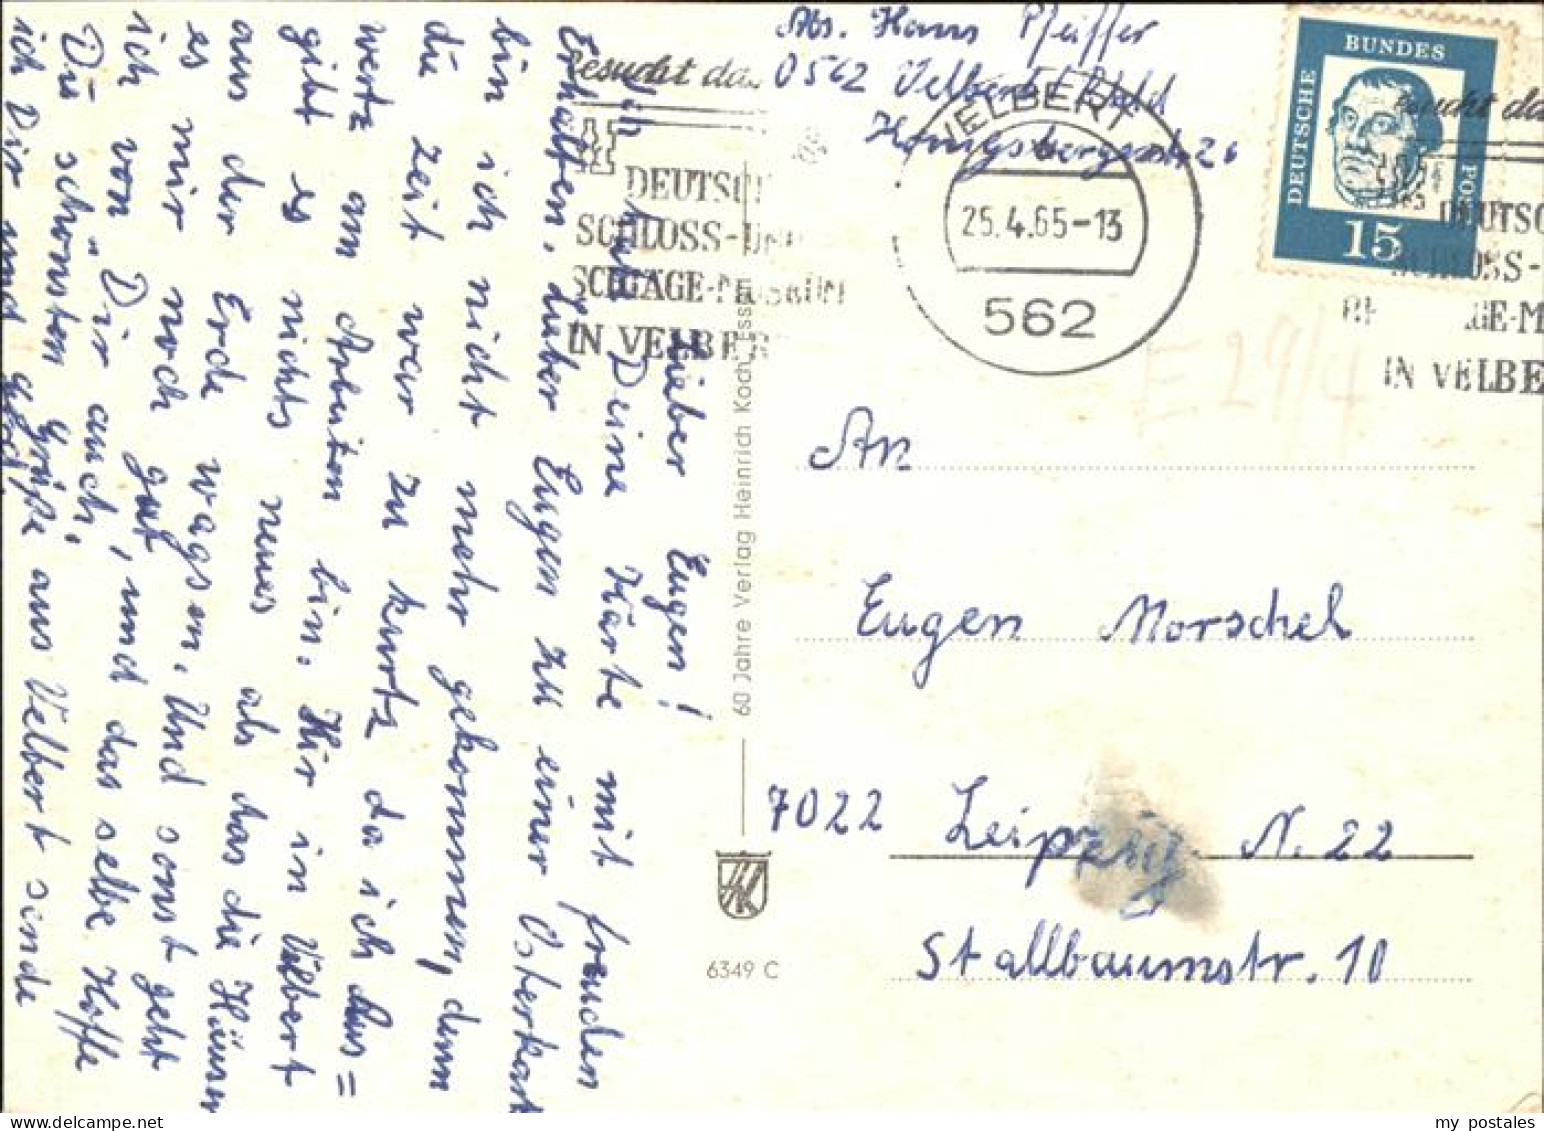 Abs. Hans Pfeiffer
0562 Velbert / Rhld
Königsbergerstr. 26
BUNDES
DEUTSCHE
POST
15
VELBERT
25.4.65-13
562
Besucht das
DEUTSCHE
SCHLOSS- UND
BESCHLÄGE-MUSEUM
IN VELBERT
Besucht das
DEUTSC
SCHLOSS-
BESCHLÄGE-M
IN VELBE
E 29/4
An
Eugen Morschel
7022 Leipzig N. 22
Stallbaumstr. 10
60 Jahre Verlag Heinrich Koch, Essen
6349 C
Lieber Eugen!
Ich habe Deine Karte mit freuden
Erhalten. Lieber Eugen zu einer Osterkart
bin ich nicht mehr gekommen, denn
die Zeit war zu kurtz da ich Aus=
wertz am Arbeiten bin. Hir in Velbert
gibt es nichts neues als das die Häuser
aus der Erde wagsen. Und sonst geht
es mir noch gut, und das selbe Hoffe
ich von Dir auch.
Die schönsten Grüße aus Velbert sende
ich Dir und